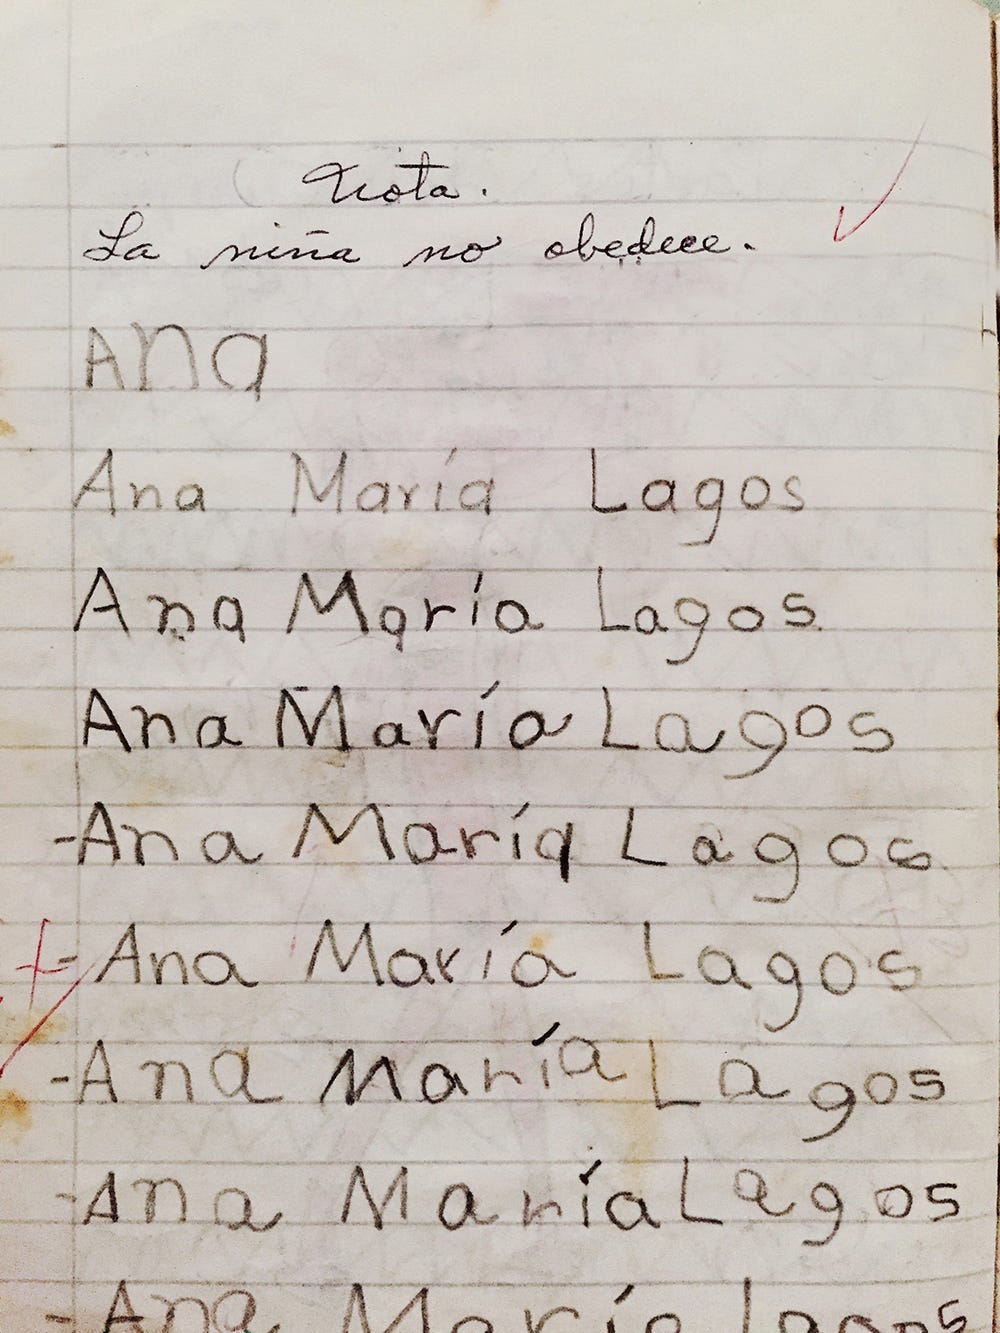 Nota.
La niña no obedece.
Ana
Ana María Lagos
Ana María Lagos
Ana María Lagos
-Ana María Lagos
- Ana María Lagos
-Ana María Lagos
-Ana María Lagos
-Ana María Lagos